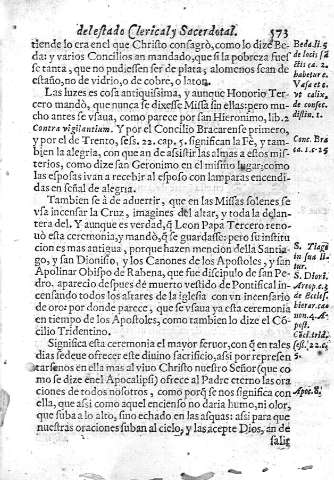 del estado Clerical y Sacerdotal. 573
tiende lo era en el que Christo consagrò, como lo dize Be-
da: y varios Concilios an mandado, que si la pobreza fues
se tanta, que no pudiessen ser de plata, alomenos sean de
estaño, no de vidrio, o de cobre, o laton.
Las luzes es cosa antiquissima, y aunque Honorio Ter-
cero mandò, que nunca se dixesse Missa sin ellas: pero mu-
cho antes se vsaua, como parece por san Hieronimo, lib. 2
Contra vigilantium. Y por el Concilio Bracarense primero,
y por el de Trento, sess. 22. cap. 5. significan la Fè, y tam-
bien la alegria, con que an de assistir las almas a estos mis-
terios, como dize san Geronimo en el mismo lugar: como
las esposas ivan a recebir al esposo con lamparas encendi-
das en señal de alegria.
Tambien se à de aduertir, que en las Missas solenes se
vsa incensar la Cruz, imagines del altar, y toda la delan-
tera del. Y aunque es verdad, q̃ Leon Papa Tercero reno-
uò esta ceremonia, y mandò, q̃ se guardasse: pero su institu
cion es mas antigua, porque hazen mencion della Santia-
go, y san Dionisio, y los Canones de los Apostoles, y san
Apolinar Obispo de Rabena, que fue discipulo de san Pe-
dro, aparecio despues de muerto vestido de Pontifical in-
censando todos los altares de la iglesia con vn incensario
de oro: por donde parece, que se vsaua ya esta ceremonia
en tiempo de los Apostoles, como tambien lo dize el Cõ-
cilio Tridentino.
Significa esta ceremonia el mayor feruor, con q̃ en tales
dias se deue ofrecer este diuino sacrificio, assi por represen
tarse nos en ella mas al viuo Christo nuestro Señor (que co
mo se dize en el Apocalipsi) ofrece al Padre eterno las ora
ciones de todos nosotros, como porq̃ se nos significa con
ella, que assi como aquel encienso no daria humo, ni olor,
que suba a lo alto, sino echado en las asquas: assi para que
nuestras oraciones suban al cielo, y las acepte Dios, an de
salir
Beda li. 5
de locis sã
ctis ca. 2.
habetur c.
Vasa et c.
vt calix,
de conse.
distin. 1.
Conc. Bra
ca. 1. c. 25
S. Tiago
in sua li
tur.
S. Dioni.
Areop. c. 3
de Eccles.
Apoc. 8.